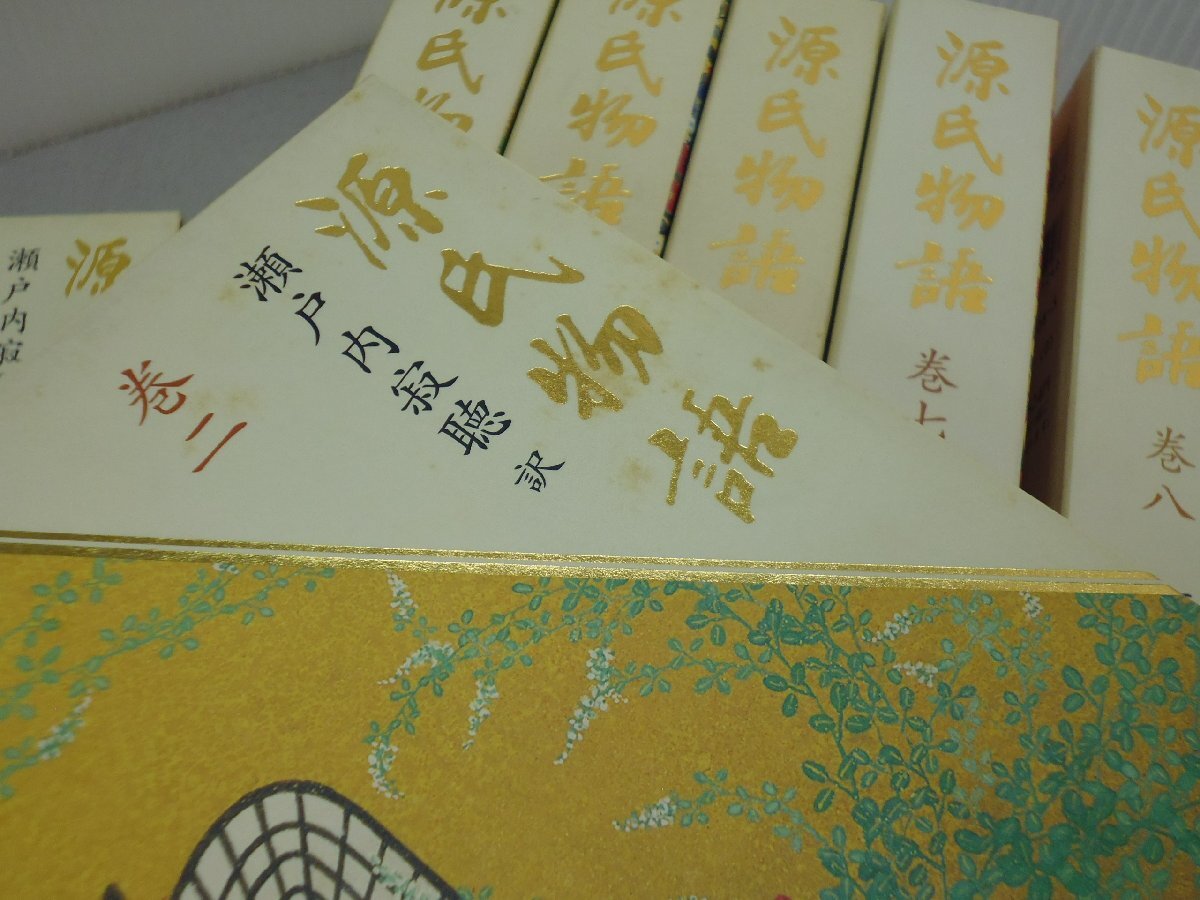 源氏物
源氏物語
源氏物語
源氏物語
巻七
源氏物語
巻八
源氏物語
瀬戸内寂聴 訳
巻二
源
瀬戸内寂